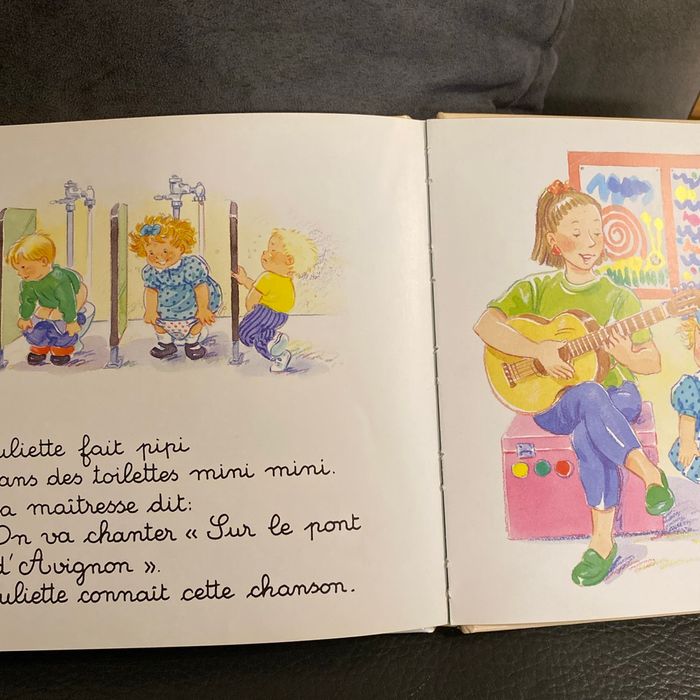 uliette fait pipi
ans des toilettes mini mini.
a maîtresse dit:
On va chanter « Sur le pont
d'Avignon ».
uliette connaît cette chanson.